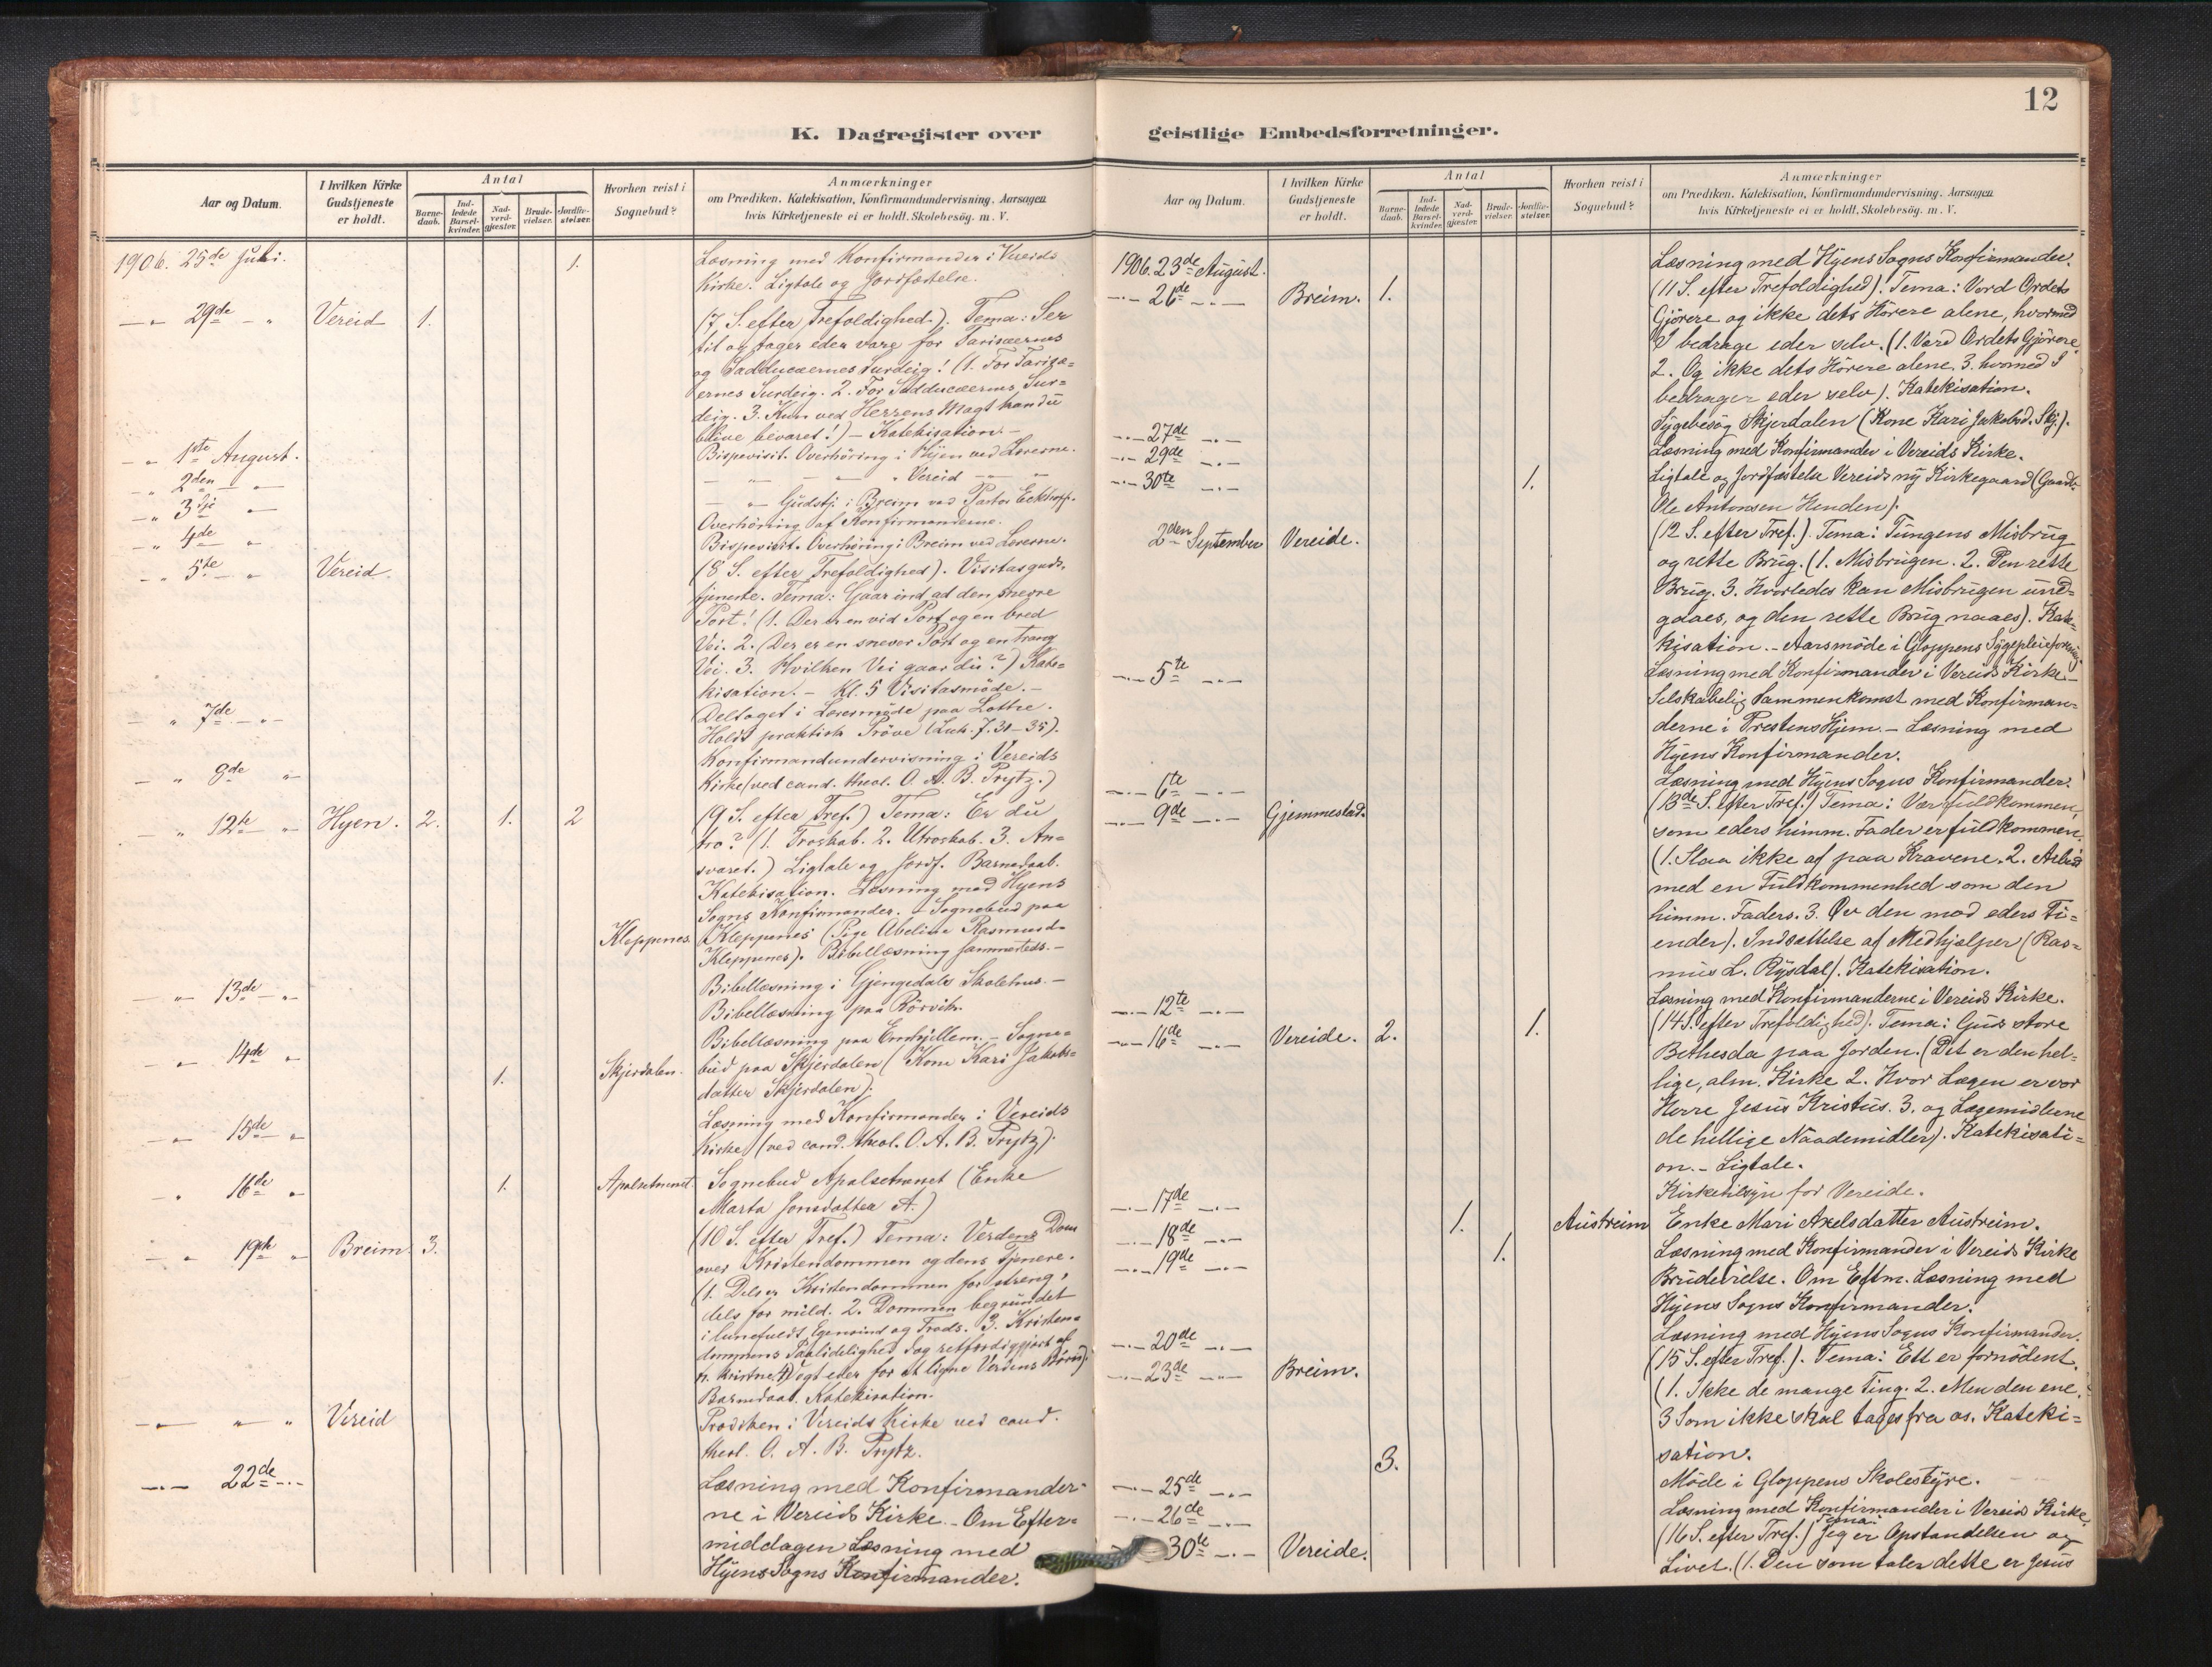 12
K. Dagregister over
Aar og Datum.
I hvilken Kirke Gudstjeneste er holdt.
Antal
Barne-daab.
Ind-ledede Barsel-kvinder.
Nad-verd-gjester.
Brude-vielser.
Jordfæ-stelser.
Hvorhen reist i Sognebud?
Anmærkninger
om Prædiken, Katekisation, Konfirmandundervisning, Aarsagen
hvis Kirketjeneste ei er holdt, Skolebesög. m. V.
1906. 25de Juli. 1. Læsning med Konfirmander i Vereids
Kirke. Ligtale og Jordfæstelse.
— " 29de — " Vereid 1. (7. S. efter Trefoldighed.). Tema: Ser
til og tager eder vare for Farisæernes
og Sadducæernes Surdeig! (1. For Farisæ=
ernes Surdeig. 2. For Sadducæernes Sur=
deig. 3. Kun ved Herrens Magt kan du
blive bevaret!) — Katekisation. —
— " 1ste August. Bispevisit. Overhöring i Hyen ved Lærerne.
— " 2den — " — " — " Vereid — " — "
— " 3dje " — " — Gudstj. i Breim ved Pastor Eckhoff.
Overhöring af Konfirmanderne.
— " 4de " Bispevisit. Overhöring i Breim ved Lærerne.
— " 5te — " Vereid. (8 S. efter Trefoldighed). Visitasguds=
tjeneste. Tema: Gaar ind ad den snevre
Port! (1. Der er en vid Port og en bred
Vei. 2. Der er en snever Port og en trang
Vei. 3. Hvilken Vei gaar du?) Kate=
kisation. — Kl. 5 Visitasmöde. —
— " 7de — " — Deltaget i Læremöde paa Lothe.
Holdt praktisk Pröve (Luk. 7.31—35).
— " 8de " Konfirmandundervisning i Vereids
Kirke (ved cand. theol. O. A. B. Prytz.)
— " 12te " Hyen. 2. 1. 2 (9 S. efter Tref.) Tema: Er du
tro? (1. Troskab. 2. Utroskab. 3. An=
svaret.) Ligtale og Jordf. Barnedaab.
Katekisation. Læsning med Hyens
Sogns Konfirmander. — Sognebud paa
Kleppenes. Kleppenes (Pige Abeline Rasmusd.
Kleppenes). Bibellæsning sammesteds. —
— " 13de — " Bibellæsning i Gjengedals Skolehus. —
Bibellæsning paa Rörvik.
— " 14de " Bibellæsning paa Emhjellem. — Sogne=
1. Skjerdalen. bud paa Skjerdalen (Kone Kari Jakobs=
datter Skjerdalen).
— " 15de " Læsning med Konfirmander i Vereids
Kirke (ved cand. theol. O. A. B. Prytz).
— " 16de " 1. Apalsetrænet. Sognebud Apalsetrænet (Enke
Marta Jonsdatter A.)
— " 19de " Breim. 3. (10 S. efter Tref.) Tema: Verdens Dom
over Kristendommen og dens Tjenere.
(1. Dels er Kristendommen for streng,
dels for mild. 2. Dommen begrundet
i lunefuldt Egensind og Trods. 3. Kristen=
dommens Paalidelighed dog retfærdiggjort af
n. Kristne. 4) Vogt eder for at ligne Verdens Börn).
Barnedaab. Katekisation.
— " " " Vereid Prædiken i Vereids Kirke ved cand.
theol. O. A. B. Prytz.
— " — 22de — " — Læsning med Konfirmander=
ne i Vereids Kirke. — Om Efter=
middagen Læsning med
Hyens Sogns Konfirmander.
geistlige Embedsforretninger.
Aar og Datum.
I hvilken Kirke Gudstjeneste er holdt.
Antal
Barne-daab.
Ind-ledede Barsel-kvinder.
Nad-verd-gjester.
Brude-vielser.
Jordfæ-stelser.
Hvorhen reist i Sognebud?
Anmærkninger
om Prædiken, Katekisation, Konfirmandundervisning, Aarsagen
hvis Kirketjeneste ei er holdt, Skolebesög. m. V.
1906. 23de August. Læsning med Hyens Sogns Konfirmander.
— " — 26de — " — Breim. 1. (11 S. efter Trefoldighed). Tema: Vord Ordets
Gjörere og ikke dets Hörere alene, hvormed
I bedrage eder selv. (1. Vord Ordets Gjörere
2. Og ikke dets Hörere alene. 3. hvormed I
bedrager eder selv). Katekisation.
— " — 27de — " — Sygebesög Skjerdalen (Kone Kari Jakobsd. Skj.).
— " — 29de — " — Læsning med Konfirmander i Vereids Kirke.
— " — 30te — " — 1. Ligtale og Jordfæstelse Vereids ny Kirkegaard (Gaardb.
Ole Antonsen Henden).
2den September Vereide. (12 S. efter Tref.). Tema: Tungens Misbrug
og rette Brug. (1. Misbrugen. 2. Den rette
Brug. 3. Hvorledes kan Misbrugen und=
gaaes, og den rette Brug naaes). Kate=
kisation. — Aarsmöde i Gloppens Sygepleieforening
— " — 5te — " — Læsning med Konfirmander i Vereids Kirke. —
Selskabelig Sammenkomst med Konfirman=
derne i Prestens Hjem. — Læsning med
Hyens Konfirmander.
— " — 6te — " — Læsning med Hyens Sogns Konfirmander.
— " — 9de — " — Gjemmestad. (13de S. efter Tref.) Tema: Vær fuldkommen,
som eders himm. Fader er fuldkommen.
(1. Slaa ikke af paa Kravene. 2. Arbeid
med en Fuldkommenhed som den
himm. Faders. 3. Öv den mod eders Fi=
ender). Indsættelse af Medhjælper (Ras=
mus L. Rysdal). Katekisation.
— " — 12te — " — Læsning med Konfirmanderne i Vereids Kirke.
— " — 16de — " — Vereide. 2. 1. (14 S. efter Trefoldighed). Tema: Guds store
Bethesda paa Jorden. (Det er den hel=
lige, alm. Kirke 2. Hvor Lægen er vor
Herre Jesus Kristus. 3. og Lægemidlerne
de hellige Naademidler). Katekisati=
on. — Ligtale.
— " — 17de — " — Kirketilsyn for Vereide.
— " — 18de — " — 1. Austreim Enke Mari Axelsdatter Austreim.
— " — 19de — " — 1. Læsning med Konfirmander i Vereids Kirke
Brudevielse. Om Eftm. Læsning med
Hyens Sogns Konfirmander.
— " — 20de — " — Læsning med Hyens Sogns Konfirmander.
— " — 23de — " — Breim. (15 S. efter Tref.). Tema: Ett er fornödent.
(1. Ikke de mange Ting. 2. Men den ene.
3 Som ikke skal tages fra os. Kateki=
3. sation.
— " — 25de — " — Möde i Gloppens Skolestyre.
— " — 26de — " — Læsning med Konfirmander i Vereids Kirke.
30te — " — Vereide. (16 S. efter Tref.) Tema: Jeg er Opstandelsen og
Livet. (1. Den som taler dette er Jesus